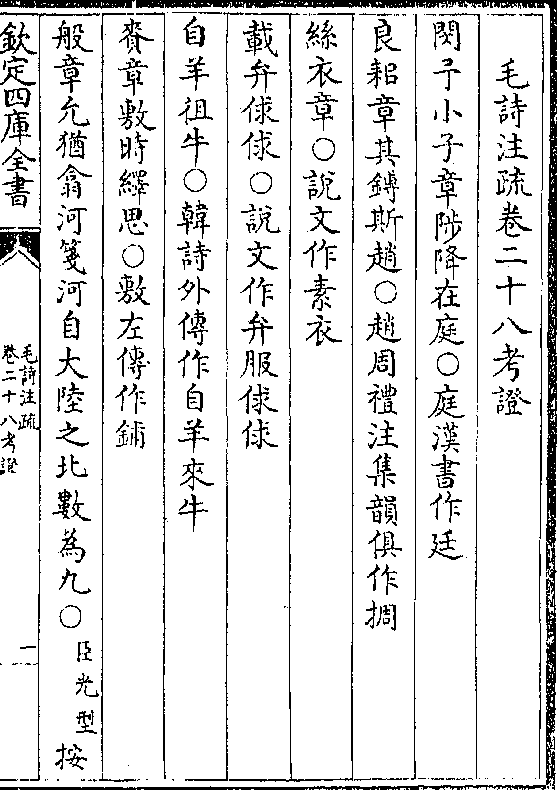 毛詩注疏卷二十八考證
閔予小子章陟降在庭○庭漢書作廷
良耜章其鎛斯趙○趙周禮注集韻俱作捆
絲衣章○說文作素衣
載弁俅俅○說文作弁服俅俅
自羊徂牛○韓詩外傳作自羊來牛
賚章敷時繹思○敷左傳作鋪
般章允猶翕河箋河自大陸之北數為九○臣光型按
欽定四庫全書
毛詩注疏
卷二十八考證
一